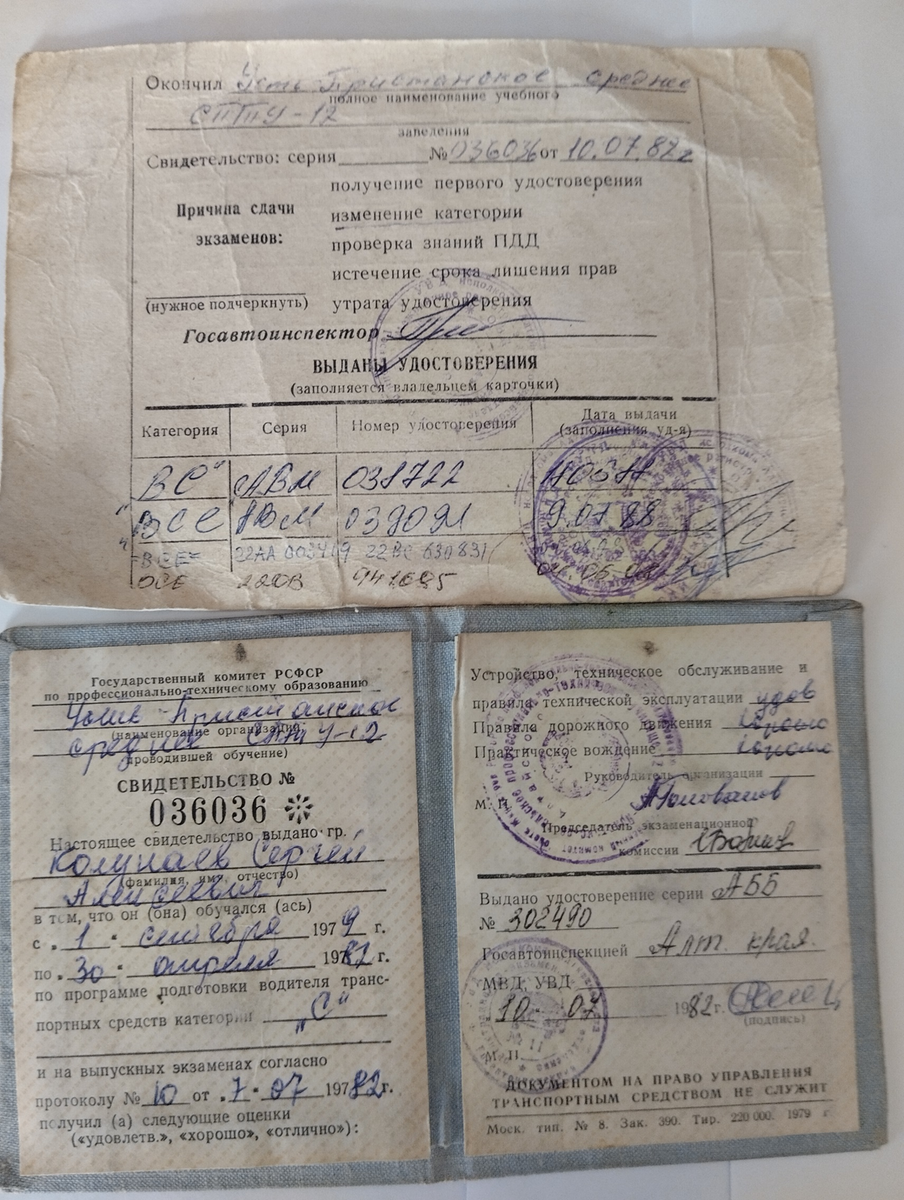 Окончил Усть-Пристанское среднее
полное наименование учебного
СПТУ-12
заведения
Свидетельство: серия № 036036 от 10.07.82 г
Причина сдачи экзаменов:
получение первого удостоверения
изменение категории
проверка знаний ПДД
истечение срока лишения прав
утрата удостоверения
(нужное подчеркнуть)
Госавтоинспектор
ВЫДАНЫ УДОСТОВЕРЕНИЯ
(заполняется владельцем карточки)
Категория Серия Номер удостоверения Дата выдачи (заполнения уд-я)
"ВС" АВМ 031722
"ВСЕ" АВМ 039091 9.07.88
"ВСЕ" 22АА 003419 22ВС 630831
ВСЕ 22ОВ 941695
Государственный комитет РСФСР
по профессионально-техническому образованию
Усть-Пристанское
(наименование организации,
среднее СПТУ-12
проводившей обучение)
СВИДЕТЕЛЬСТВО №
036036
Настоящее свидетельство выдано гр.
Колупаев Сергей
(фамилия, имя, отчество)
Алексеевич
в том, что он (она) обучался (ась)
с „1“ сентября 1979 г.
по „30“ апреля 1982 г.
по программе подготовки водителя транс-
портных средств категории „С“
и на выпускных экзаменах согласно
протоколу № 10 от „7“ 07 1982 г.
получил (а) следующие оценки
(«удовлетв.», «хорошо», «отлично»):
Устройство, техническое обслуживание и
правила технической эксплуатации удов
Правила дорожного движения хорошо
Практическое вождение хорошо
Руководитель организации
М. П.
Председатель экзаменационной
комиссии
Выдано удостоверение серии АББ
№ 302490
Госавтоинспекцией Алт. края.
МВД, УВД
10 - 07 1982 г.
(подпись)
М. П.
ДОКУМЕНТОМ НА ПРАВО УПРАВЛЕНИЯ
ТРАНСПОРТНЫМ СРЕДСТВОМ НЕ СЛУЖИТ
Моск. тип. № 8. Зак. 390. Тир. 220 000. 1979 г.